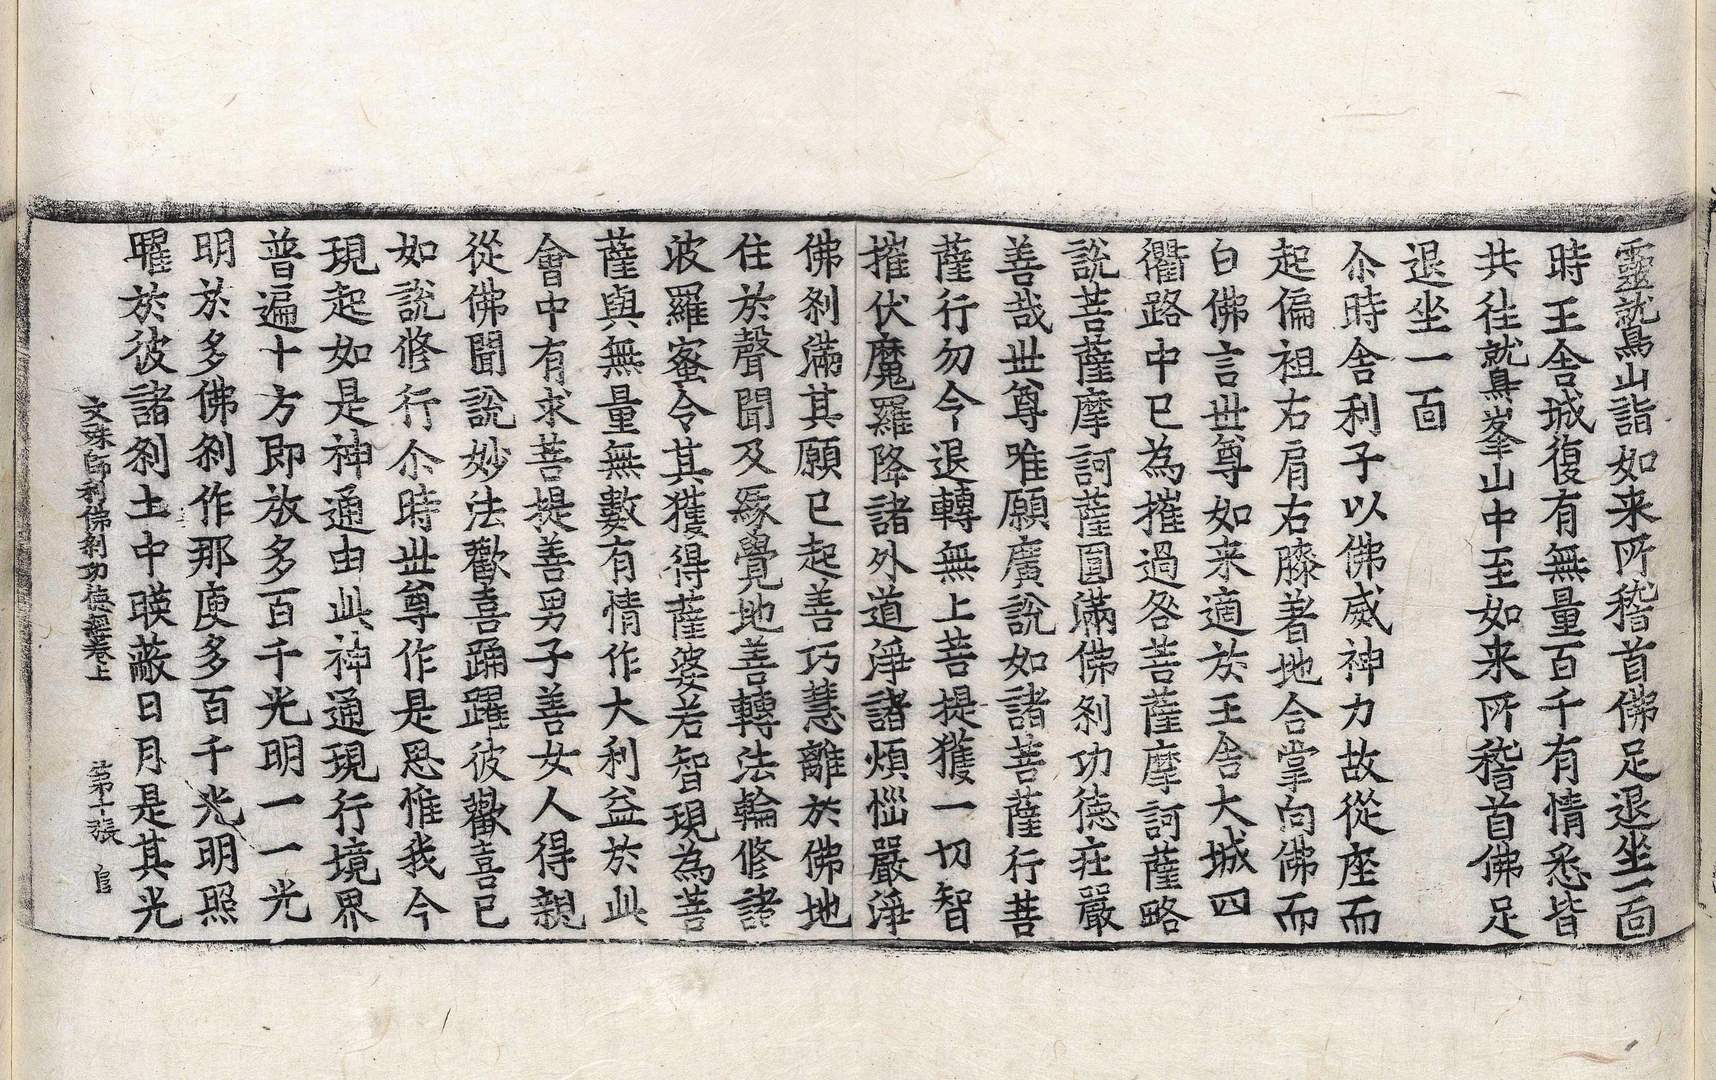 靈鷲山詣如来所稽首佛足退坐一面
時王舍城復有無量百千有情悉皆
共往鷲峯山中至如来所稽首佛足
退坐一面
尒時舍利子以佛威神力故從座而
起偏袒右肩右膝著地合掌向佛而
白佛言世尊如来適於王舍大城四
衢路中已為摧過咎菩薩摩訶薩略
說菩薩摩訶薩圓滿佛剎功德莊嚴
善哉世尊唯願廣說如諸菩薩行菩
薩行勿令退轉無上菩提獲一切智
摧伏魔羅降諸外道淨諸煩惱嚴淨
佛剎滿其願已起善巧慧離於佛地
住於聲聞及緣覺地善轉法輪修諸
波羅蜜令其獲得薩婆若智現為菩
薩與無量無數有情作大利益於此
會中有求菩提善男子善女人得親
從佛聞說妙法歡喜踊躍彼歡喜已
如說修行尒時世尊作是思惟我今
現起如是神通由此神通現行境界
普遍十方即放多百千光明一一光
明於多佛剎作那庾多百千光明照
曜於彼諸剎土中暎蔽日月是其光
文殊師利佛剎功德經卷上　第十張　官